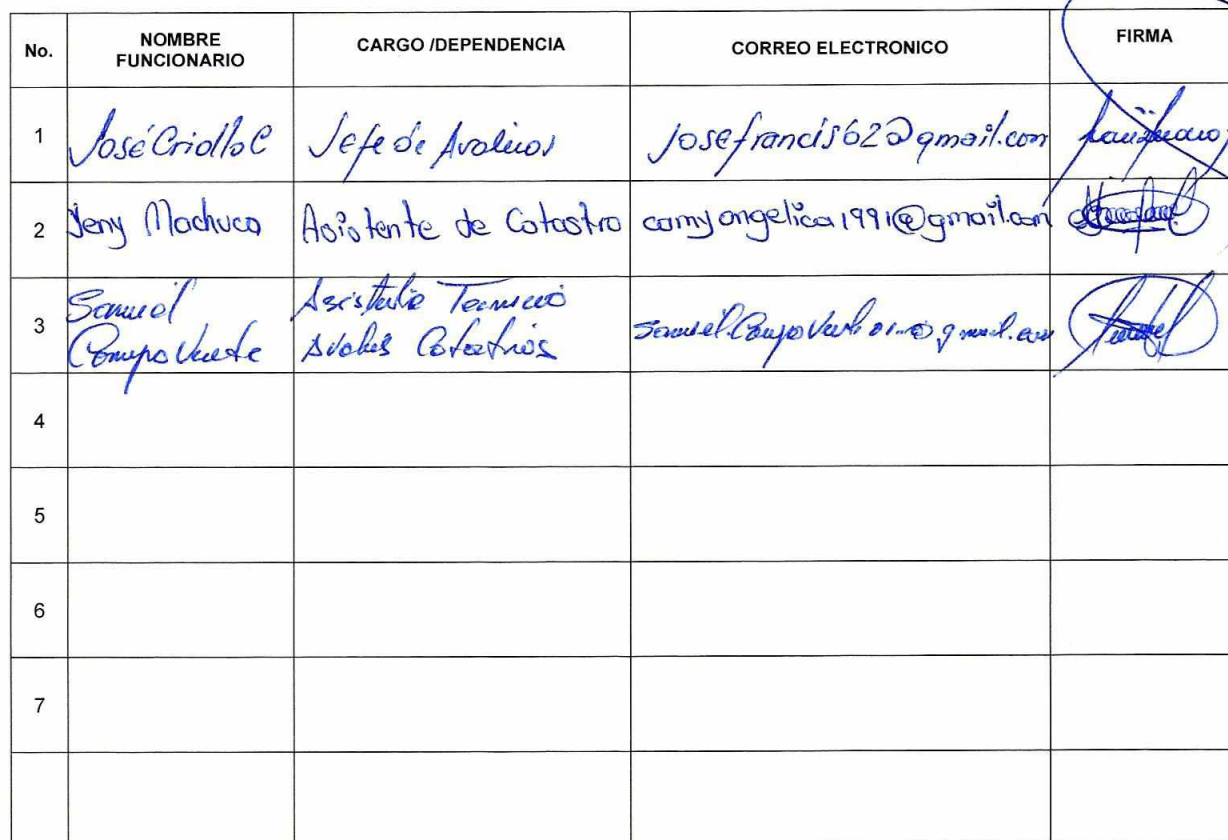 No. NOMBRE FUNCIONARIO CARGO /DEPENDENCIA CORREO ELECTRONICO FIRMA
1 José Criollo C Jefe de Avaluos josefrancis62@gmail.com
2 Jeny Machuca Asistente de Catastro camyangelica1991@gmail.com
3 Samuel Asistente Tecnico
Campoverde Avaluos Catastros
4
5
6
7